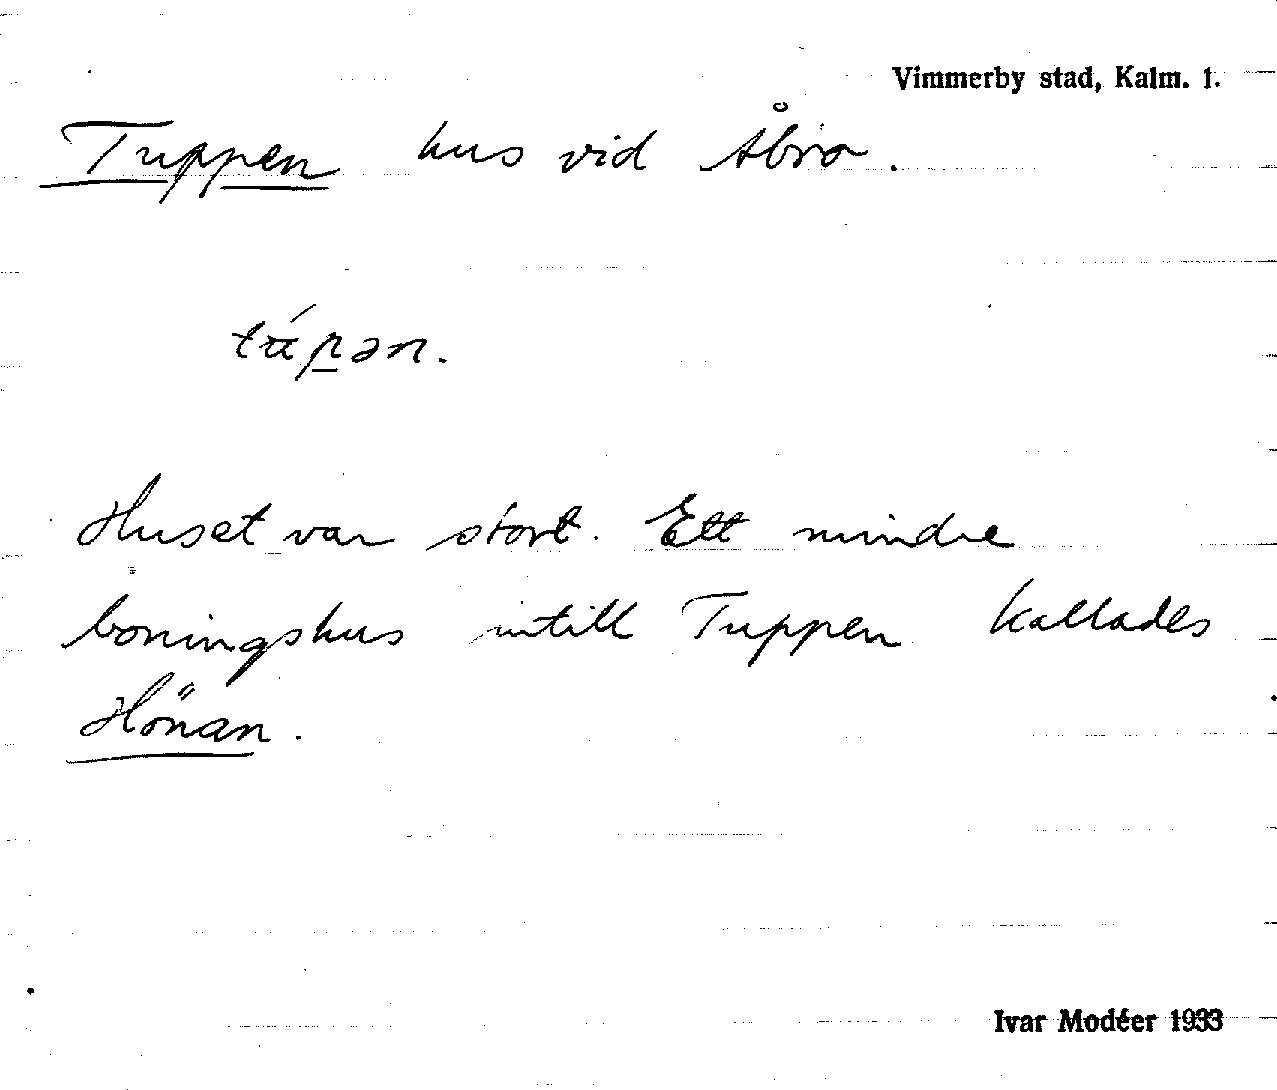 Vimmerby stad, Kalm. l.
Tuppen hus vid Åbro.
túpən.
Huset var stort. Ett mindre
boningshus intill Tuppen kallades
Hönan.
Ivar Modéer 1933